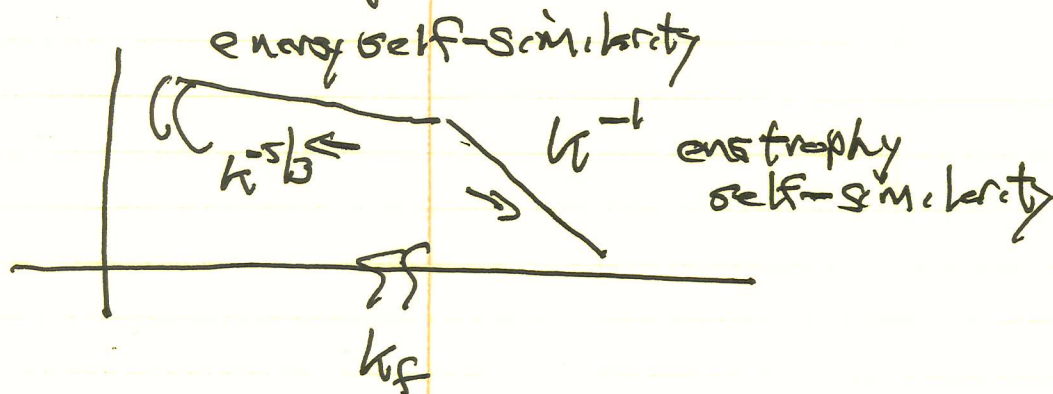 energy self-similarity
k^-1 enstrophy
k^-5/3 self-similarity
k_f